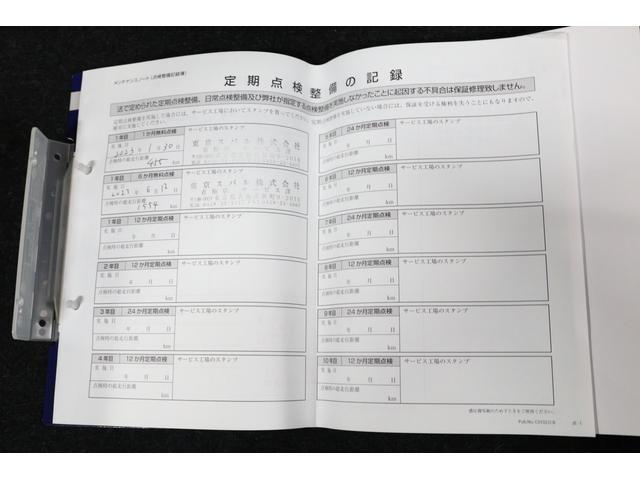 メンテナンスノート(点検整備記録簿)
定期点検整備の記録
法で定められた定期点検整備、日常点検整備及び弊社が指定する点検整備を実施しなかったことに起因する不具合は保証修理致しません。
1年目 1か月無料点検 サービス工場のスタンプ
実施日 2023年1月30日
東京スバル株式会社
点検時の総走行距離
455 km
1年目 6か月無料点検 サービス工場のスタンプ
実施日 2023年6月12日
東京スバル株式会社
点検時の総走行距離
1554 km
1年目 12か月定期点検 サービス工場のスタンプ
実施日
年 月 日
点検時の総走行距離
km
2年目 12か月定期点検 サービス工場のスタンプ
実施日
年 月 日
点検時の総走行距離
km
3年目 24か月定期点検 サービス工場のスタンプ
実施日
年 月 日
点検時の総走行距離
km
4年目 12か月定期点検 サービス工場のスタンプ
実施日
年 月 日
点検時の総走行距離
km
5年目 24か月定期点検 サービス工場のスタンプ
実施日
年 月 日
点検時の総走行距離
km
6年目 12か月定期点検 サービス工場のスタンプ
実施日
年 月 日
点検時の総走行距離
km
7年目 24か月定期点検 サービス工場のスタンプ
実施日
年 月 日
点検時の総走行距離
km
8年目 12か月定期点検 サービス工場のスタンプ
実施日
年 月 日
点検時の総走行距離
km
9年目 24か月定期点検 サービス工場のスタンプ
実施日
年 月 日
点検時の総走行距離
km
10年目 12か月定期点検 サービス工場のスタンプ
実施日
年 月 日
点検時の総走行距離
km